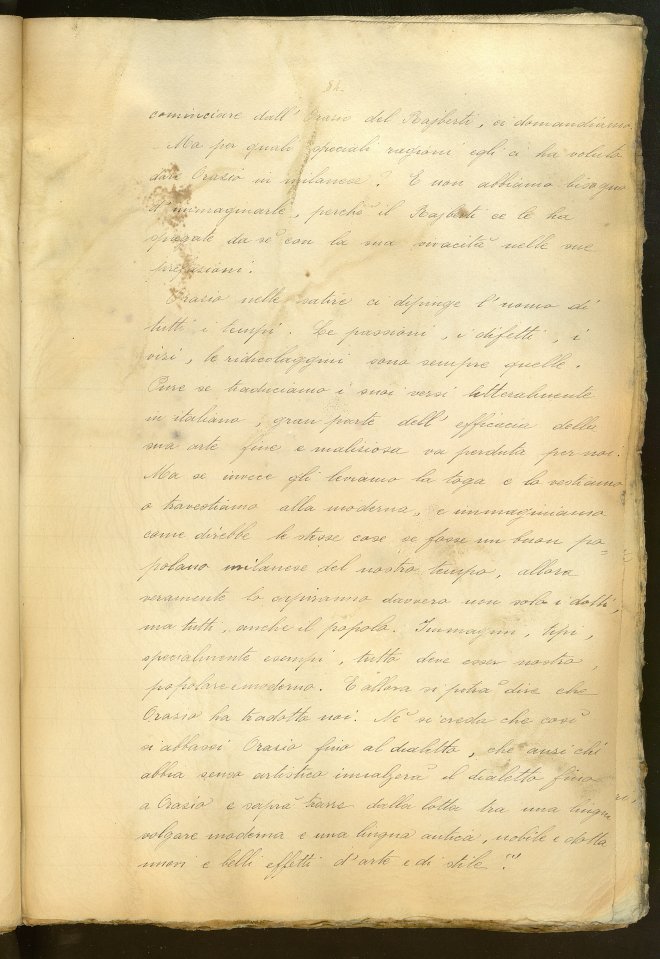 84.
cominciare dall' Orazio del Rajberti, ci domandiamo
Ma per quali speciali ragioni egli ci ha voluto
dare Orazio in milanese? E non abbiamo bisogno
d'immaginarle, perchè il Rajberti ce le ha
spiegate da sè con la sua vivacità nelle sue
prefazioni.
Orazio nelle satire ci dipinge l'uomo di
tutti i tempi. Le passioni, i difetti, i
vizi, le ridicolaggini sono sempre quelle.
Pure se traduciamo i suoi versi letteralmente
in italiano, gran parte dell'efficacia della
sua arte fine e maliziosa va perduta per noi.
Ma se invece gli leviamo la toga e lo vestiamo
o travestiamo alla moderna, e immaginiamo
come direbbe le stesse cose se fosse un buon po=
polano milanese del nostro tempo, allora
veramente lo capiranno davvero non solo i dotti,
ma tutti, anche il popolo. Immagini, tipi,
specialmente esempi, tutto deve esser nostro,
popolare e moderno. E allora si potrà dire che
Orazio ha tradotto noi. Nè si creda che così
si abbassi Orazio fino al dialetto, che anzi chi
abbia senso artistico innalzerà il dialetto fino
a Orazio e saprà trarre dalla lotta tra una lingua
volgare moderna e una lingua antica, nobile e dotta
nuovi e belli effetti d'arte e di stile."